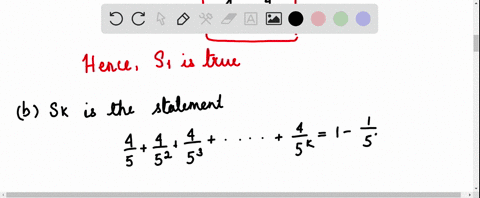 Hence, S₁ is true
(b) Sk is the statement
4/5 + 4/5² + 4/5³ + · · · · + 4/5ᵏ = 1 - 1/5